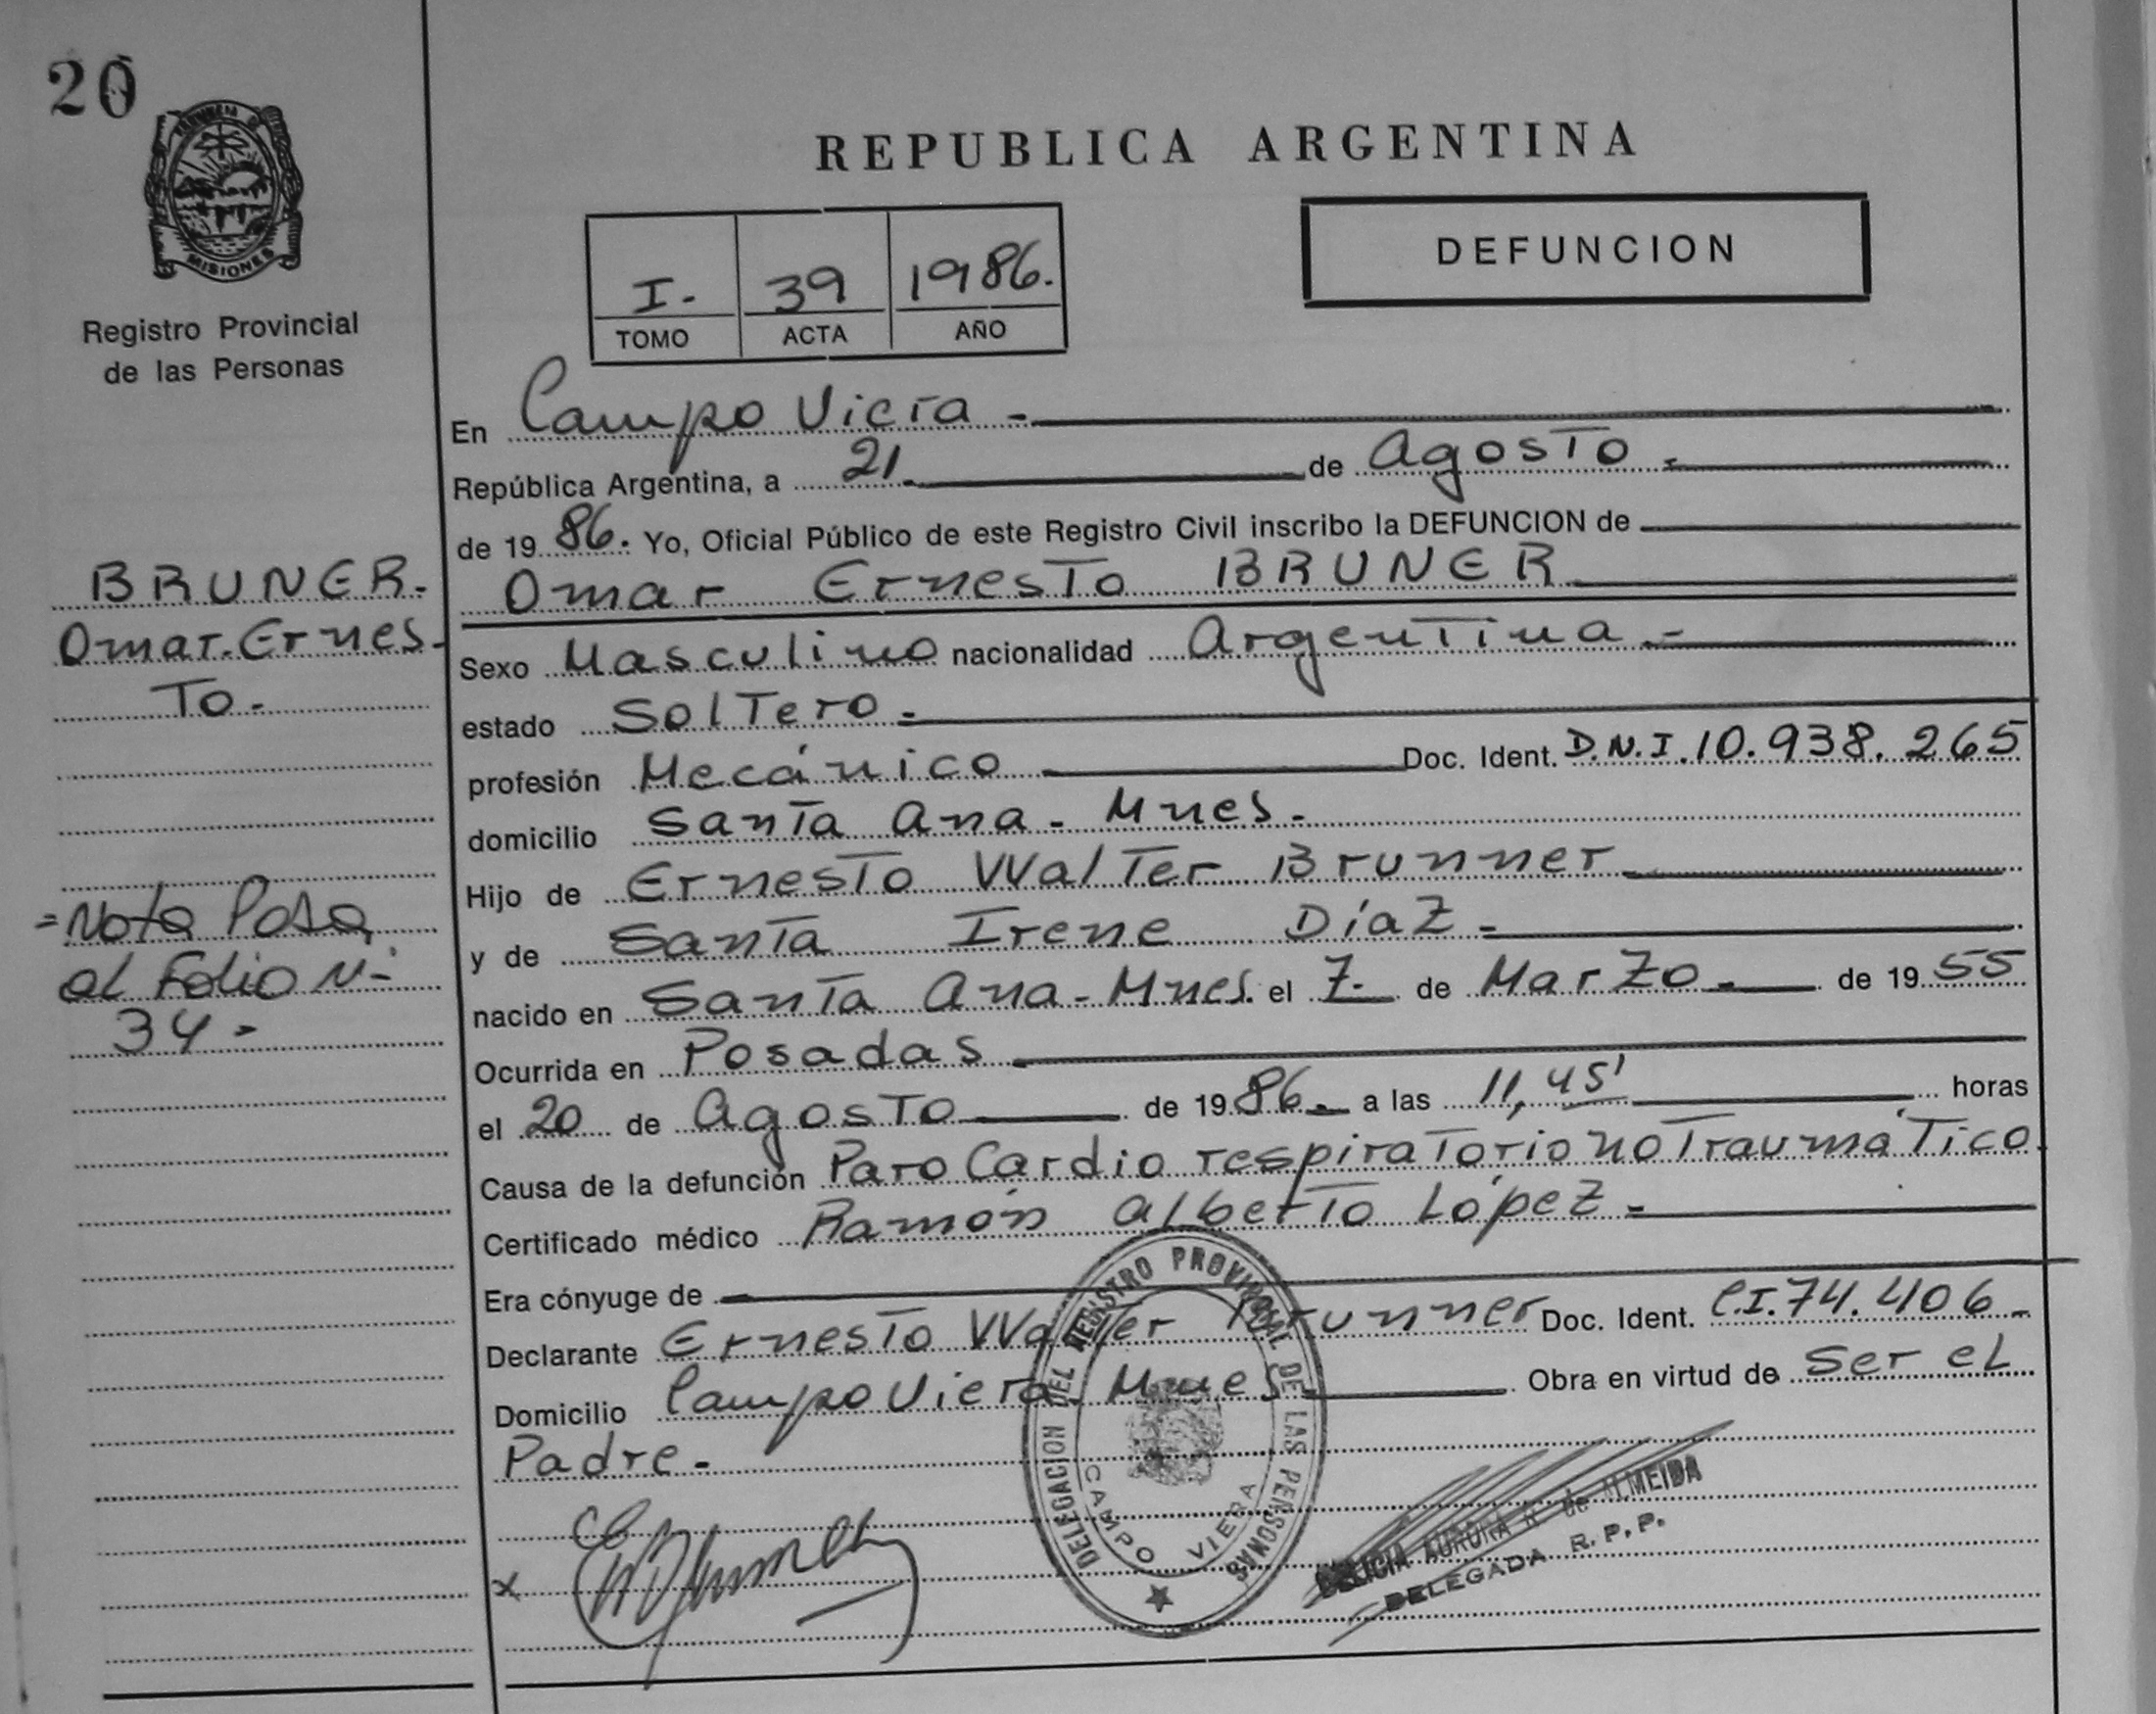 20
PROVINCIA DE
MISIONES
Registro Provincial
de las Personas
REPUBLICA ARGENTINA
DEFUNCION
I. 39 1986.
TOMO ACTA AÑO
En Campo Viera -
República Argentina, a 21. de Agosto -
de 19 86. Yo, Oficial Público de este Registro Civil inscribo la DEFUNCION de
Omar Ernesto BRUNER
BRUNER.
Omar. Ernes-
To -
Sexo Masculino nacionalidad Argentina -
estado Soltero -
profesión Mecánico Doc. Ident. D.N.I. 10.938.265
domicilio Santa Ana - Mnes -
Hijo de Ernesto Walter Brunner
y de Santa Irene Díaz -
=Nota Pasa
al Folio N-
34 -
nacido en Santa Ana - Mnes. el 7. de Marzo - de 19 55
Ocurrida en Posadas
el 20 de Agosto de 19 86 - a las 11,45' horas
Causa de la defunción Paro Cardio respiratorio no Traumático.
Certificado médico Ramón Alberto López -
Era cónyuge de
Declarante Ernesto Walter Brunner Doc. Ident. C.I. 74.406 -
Domicilio Campo Viera - Mnes - Obra en virtud de Ser el
Padre -
DELEGACION DEL REGISTRO PROVINCIAL DE LAS PERSONAS
CAMPO VIERA
x
DELICIA AURORA R. de ALMEIDA
DELEGADA R. P. P.